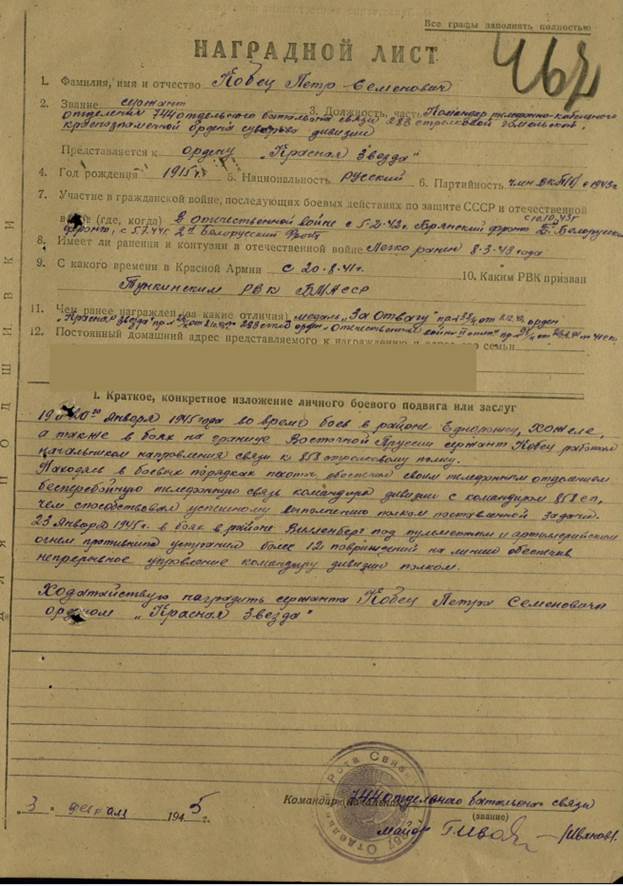 Все графы заполнять полностью
НАГРАДНОЙ ЛИСТ
467
1. Фамилия, имя и отчество Кобец Петр Семенович
2. Звание сержант 3. Должность, часть Командир телефонно-кабельного
отделения 744 отдельного батальона связи 283 стрелковой Гомельской
краснознаменной ордена суворова дивизии
Представляется к ордену „Красная Звезда"
4. Год рождения 1915 г. 5. Национальность русский 6. Партийность член ВКП(б) с 1943 г
7. Участие в гражданской войне, последующих боевых действиях по защите СССР и отечественной
войне (где, когда) В отечественной войне с 5-2-42 г. Брянский фронт Белорусский
фронт, с 5.7.44 г. 2й Белорусский фронт
8. Имеет ли ранения и контузии в отечественной войне Легко ранен 8-3-43 года
9. С какого времени в Красной Армии с 20.8.41 г. 10. Каким РВК призван
Тункинским РВК БМАССР
11. Чем ранее награжден (за какие отличия) медаль „За Отвагу" орден
„Красная Звезда" 283 стр „Отечественная война II степ"
12. Постоянный домашний адрес представляемого к награждению и адрес его семьи
I. Краткое, конкретное изложение личного боевого подвига или заслуг
19 и 20го января 1945 года во время боев в районе Еднорожец, Хожеле,
а также в боях на границе Восточной Пруссии сержант Кобец работал
начальником направления связи к 858 стрелковому полку.
Находясь в боевых порядках пехоты, обеспечил своим телефонным отделением
бесперебойную телефонную связь командира дивизии с командиром 858 сп,
чем способствовал успешному выполнению полком поставленной задачи.
23 Января 1945 г. в боях в районе Вилленберг под пулеметным и артиллерийским
огнем противника устранил более 12 повреждений на линии обеспечив
непрерывное управление командиру дивизии полком.
Ходатайствую наградить сержанта Кобец Петра Семеновича
орденом „Красная Звезда"
Командир 744 отдельного батальона связи
„3" февраля 1945 г.
(звание)
майор (Иванов)
Отдельная Рота Связи